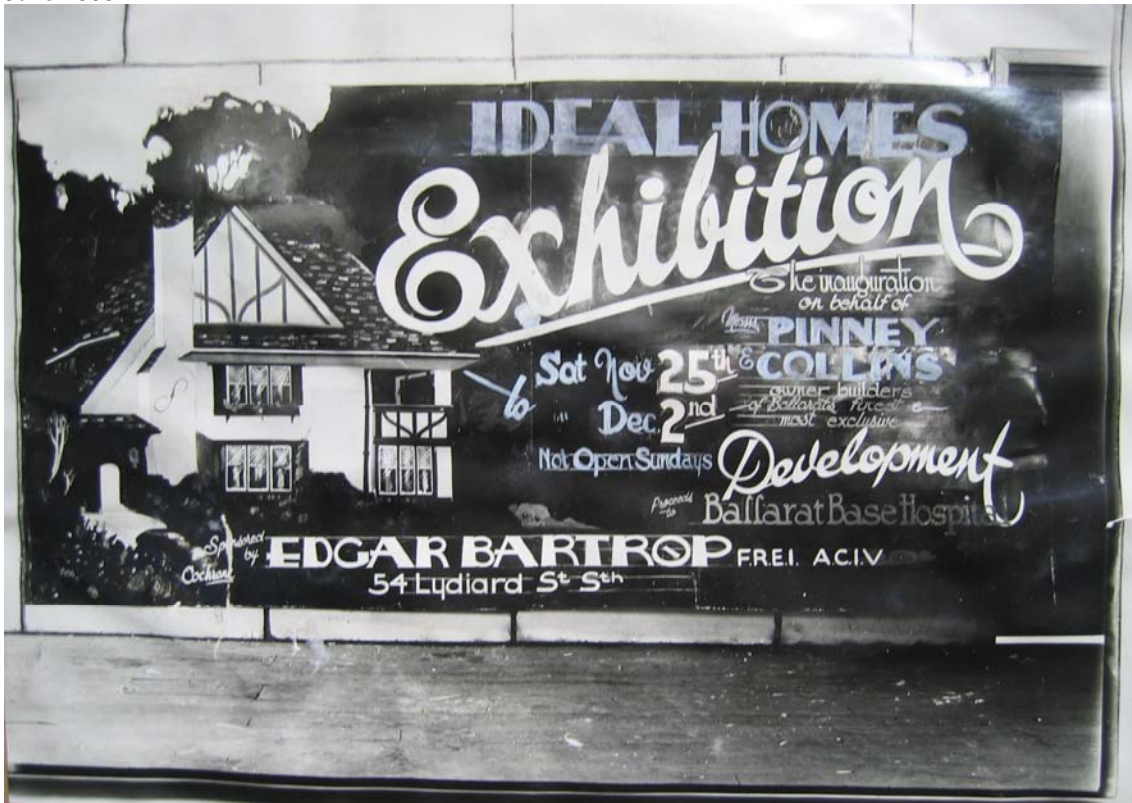 IDEAL HOMES
Exhibition
The inauguration
on behalf of
Messrs PINNEY
& COLLINS
owner builders
of Ballarat's finest &
most exclusive
Development
Sat Nov 25th
to Dec. 2nd
Not Open Sundays
Proceeds to Ballarat Base Hospital
Sponsored by EDGAR BARTROP F.R.E.I. A.C.I.V
54 Lydiard St Sth
Cochrane